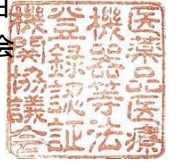 医薬品医療
機器等法
登録認証
機関協議会